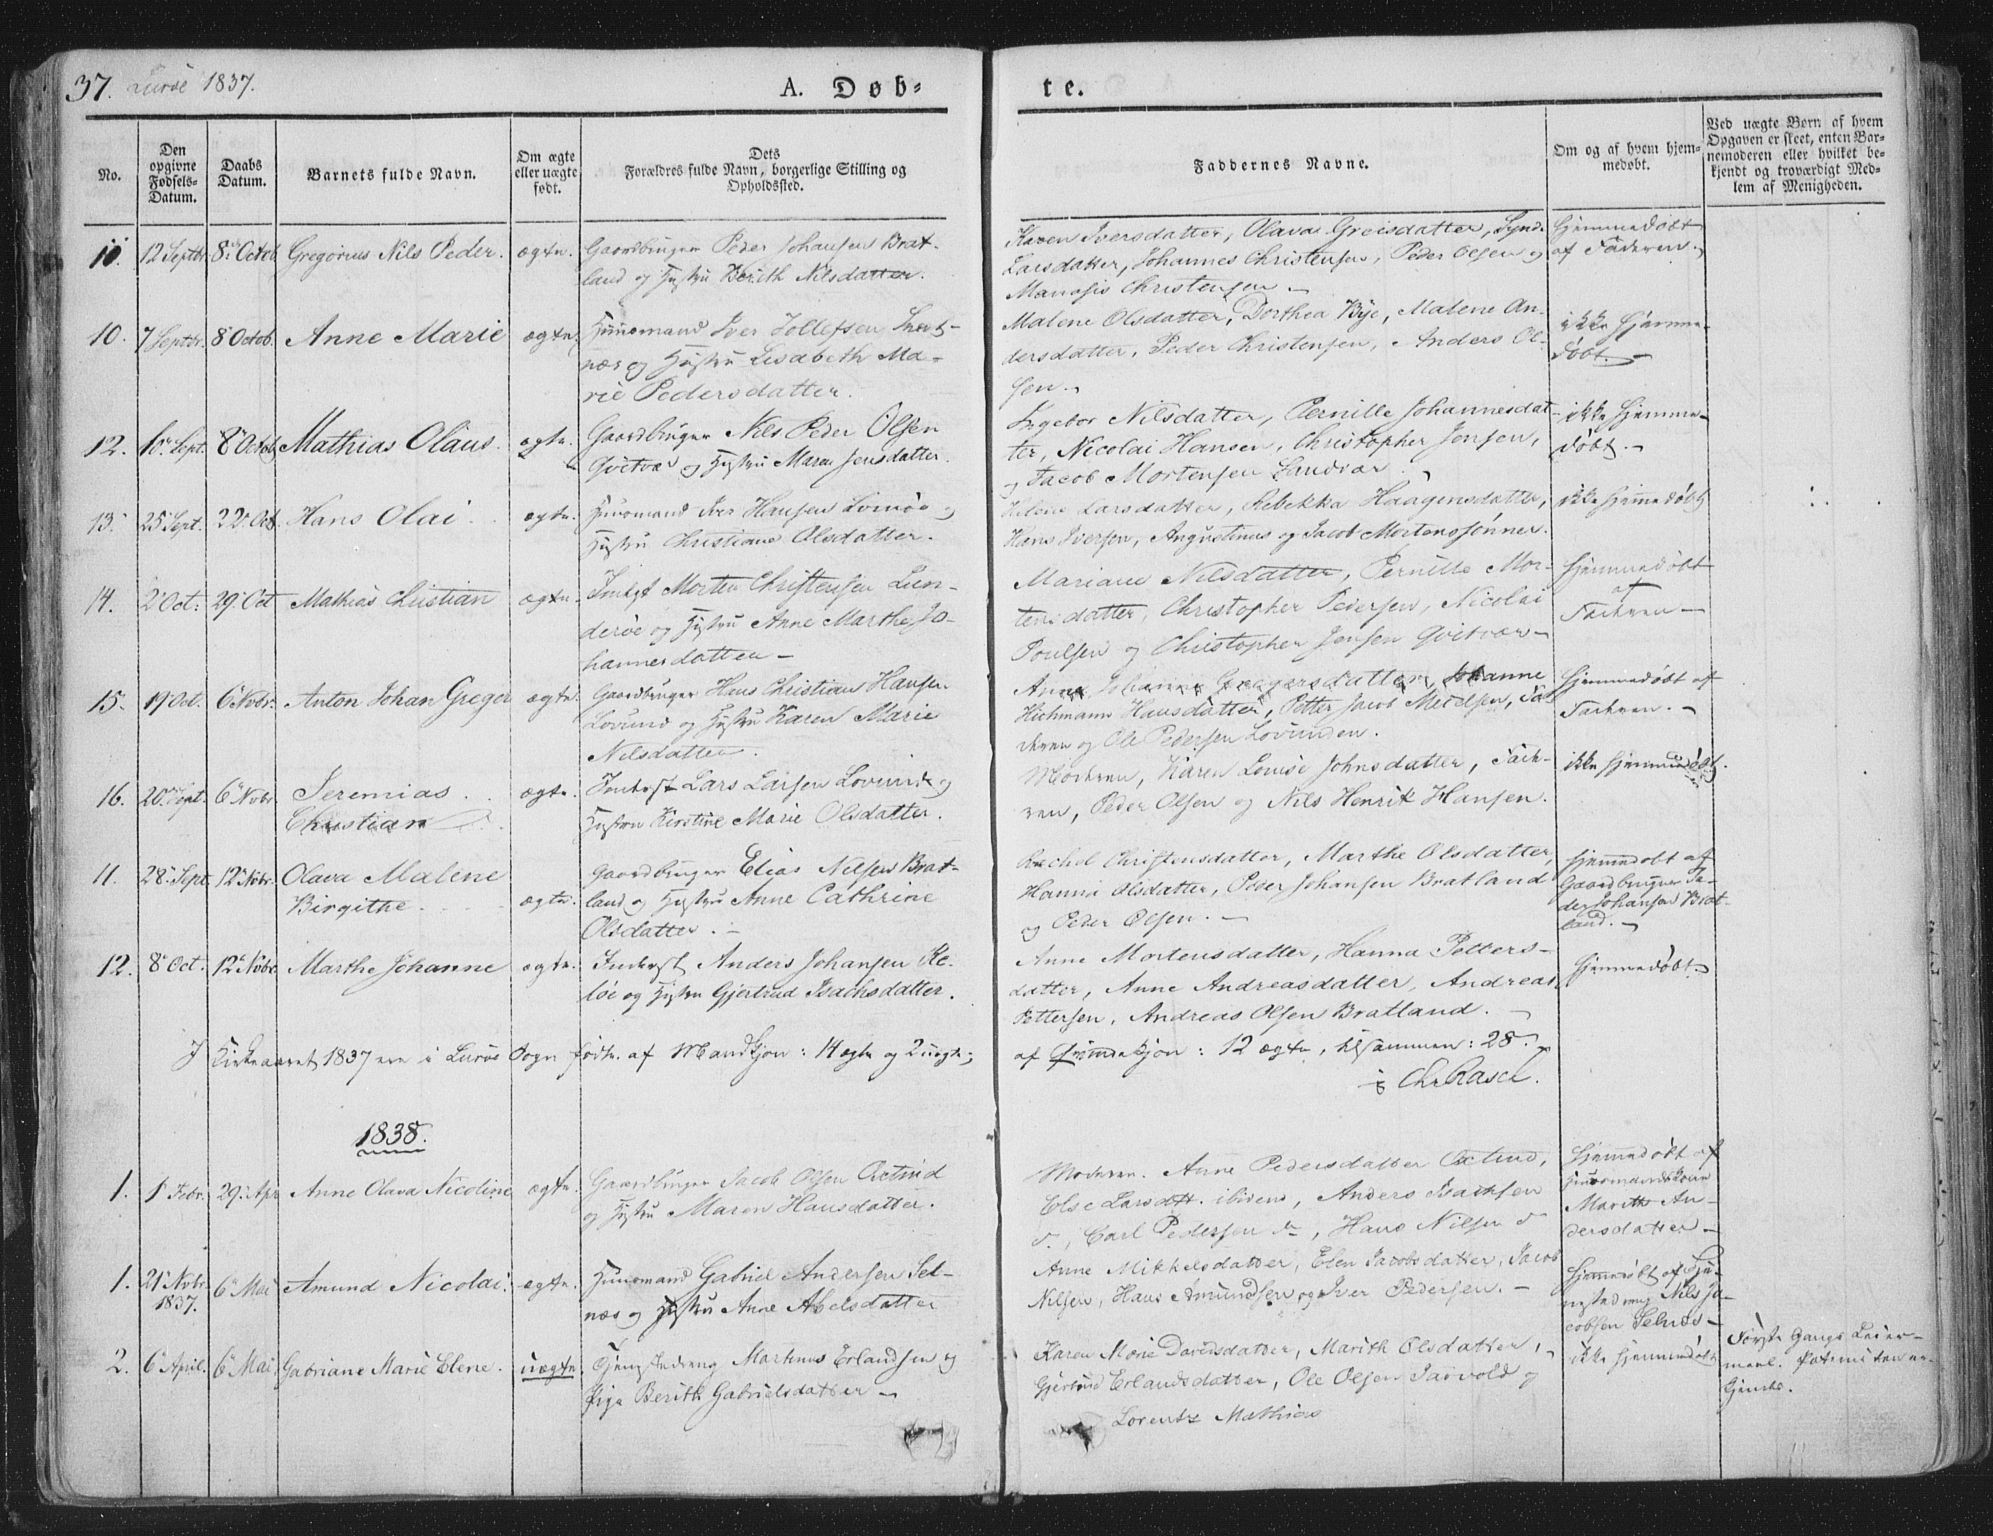 37. Lurøe 1837.
A. Døb-
te.
No.
Den opgivne Fødsels-Datum.
Daabs Datum.
Barnets fulde Navn.
Om ægte eller uægte født.
Dets Forældres fulde Navn, borgerlige Stilling og Opholdssted.
Faddernes Navne.
Om og af hvem hjemmedøbt.
Ved uægte Børn af hvem Opgaven er skeet, enten Barnemoderen eller hvilket bekjendt og troværdigt Medlem af Menigheden.
12 Septbr. 8de Octob. Gregorius Nils Peder. ægte. Gaardbruger Peder Johansen Brat-
land og Hustru Berith Nilsdatter.
Karen Iversdatter, Olava Greisdatter,
Larsdatter, Johannes Christensen, Peder Olsen og
Manasis Christensen –
Hjemmedøbt
af Faderen.
10. 7 Septbr. 8 Octob. Anne Marie ægte. Huusmand Iver Tollefsen
næs og Hustru Lisabeth Ma-
rie Pedersdatter.
Malene Olsdatter, Dorthea Bye, Malene An-
dersdatter, Peder Christensen, Anders Ol-
sen.
ikke hjemme-
døbt. –
12. 10 Sept. 8 Octob. Mathias Olaus. ægte. Gaardbruger Nils Peder Olsen
Qvitvær og Hustru Maren Jensdatter.
Ingebor Nilsdatter, Pernille Johannesdat-
ter, Nicolai Hansen, Christopher Jonsen,
og Jacob Mortensen Sandvær.
ikke hjemme-
døbt. –
13. 25 Sept. 22 Oct. Hans Olai ægte. Huusmand Iver Hansen og
Hustru Christiane Olsdatter.
Helene Larsdatter, Rebekka Haagensdatter,
Hans Iversen, Augustinus og Jacob Mortenssønner.
ikke hjemmedøbt
14. 2 Oct. 29 Oct Mathias Christian ægte. Inderst Morten Christensen Lun-
derøe og Hustru Anne Marthe Jo-
hannesdatter –
Mariane Nilsdatter, Pernille Mor-
tensdatter, Christopher Pedersen, Nicolai
Poulsen og Christopher Jensen Qvitvær –
Hjemmedøbt
af
Faderen –
15. 19 Oct. 6 Novbr. Anton Johan Greger ægte. Gaardbruger Hans Christian Hansen
Lovund og Hustru Karen Marie
Nilsdatter.
Anna Johanna Gregersdatter, Johanne
Hichmann Hansdatter, Petter Jacob Mechelsen, Fa-
deren og Ole Pedersen Lovunden.
Hjemmedøbt af
Faderen. –
16. 20 Sept. 6 Novbr. Jeremias
Christian ægte. Inderst Lars Larsen Lovund og
Hustru Kirstine Marie Olsdatter.
Moderen, Karen Louise Johnsdatter, Fade-
ren, Peder Olsen og Nils Henrik Hansen.
ikke hjemmedøbt.
11. 28 Sept 12 Novbr. Olava Malene
Birgithe ægte. Gaardbruger Elias Nilsen Brat-
land og Hustru Anne Cathrine
Olsdatter. –
Rachel Christensdatter, Marthe Olsdatter,
Hanna Olsdatter, Peder Johansen Bratland
og Peder Olsen. –
Hjemmedøbt af
Gaardbruger Pe-
der Johansen Brat-
land. –
12. 8 Oct. 12 Novbr. Marthe Johanne ægte. Inderst Anders Johansen Ke-
løe og Hustru Gjertrud Isachsdatter.
Anne Mortensdatter, Hanna Petters-
datter, Anne Andreasdatter, Andreas
Pettersen, Andreas Olsen Bratland. –
Hjemmedøbt.
I Kirkeaaret 1837 ere i Lurøe Sogn fødte af Mandkjøn: 14 ægte og 2 uægte,
af Qvindekjøn: 12 ægte, tilsammen: 28.
Chr Rasch.
1838.
1. 1 Febr. 29 Apr Anne Olava Nicoline ægte. Gaardbruger Jacob Olsen Oxtind
og Hustru Maren Hansdatter.
Moderen. Anne Pedersdatter Oxtind,
Else Larsdtt. ibidem, Anders Isachsen
d., Carl Pedersen d., Hans Nilsen d
Hjemmedøbt af
Huusmandskone
Marith An-
dersdatter –
1. 21 Novbr
1837. 6 Mai Amund Nicolai. ægte. Huusmand Gabriel Andersen Sel-
næs og Hustru Anne Abelsdatter
Anne Mikkelsdatter, Elen Jacobsdatter, Jacob
Nilsen, Hans Amundsen og Iver Pedersen. –
Hjemmedøbt af
Nils Ja-
cobsen Selnæs –
2. 6 April. 6 Mai Gabriane Marie Elene. uægte. Tjenestedreng Martinus Erlandsen og
Pige Berith Gabrielsdatter –
Karen Marie Davidsdatter, Marith Olsdatter,
Gjertrud Erlandsdatter, Ole Olsen og
Lorentz Mathias
ikke hjemmedøbt
Første Gangs Leier-
maal. Paterniteten er-
kjendt.